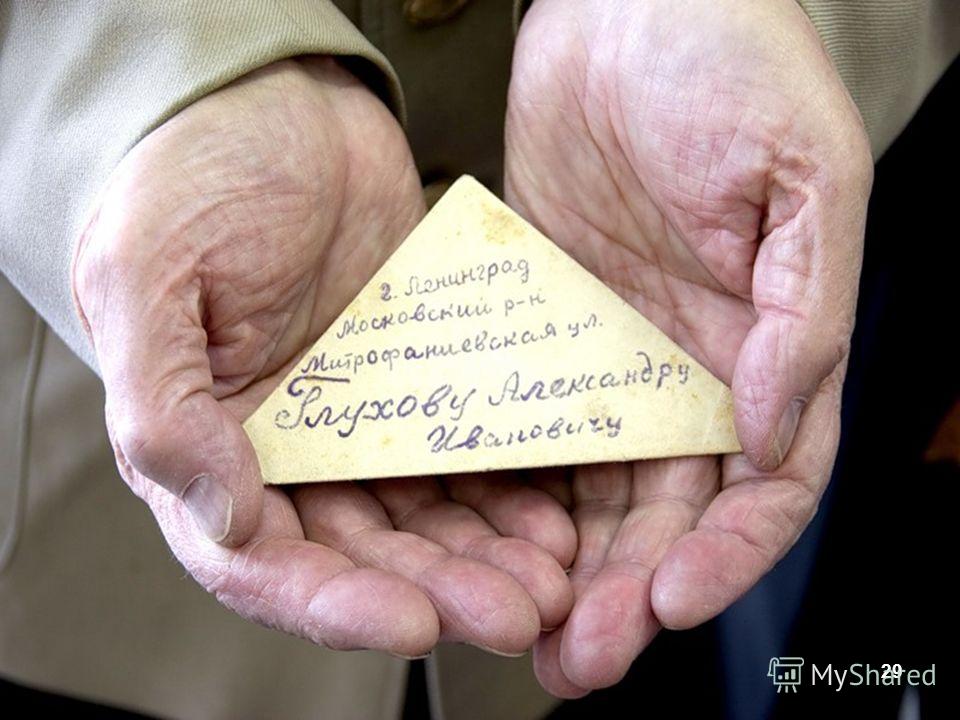 г. Ленинград
Московский р-н
Митрофаниевская ул.
Глухову Александру
Ивановичу
29
MyShared